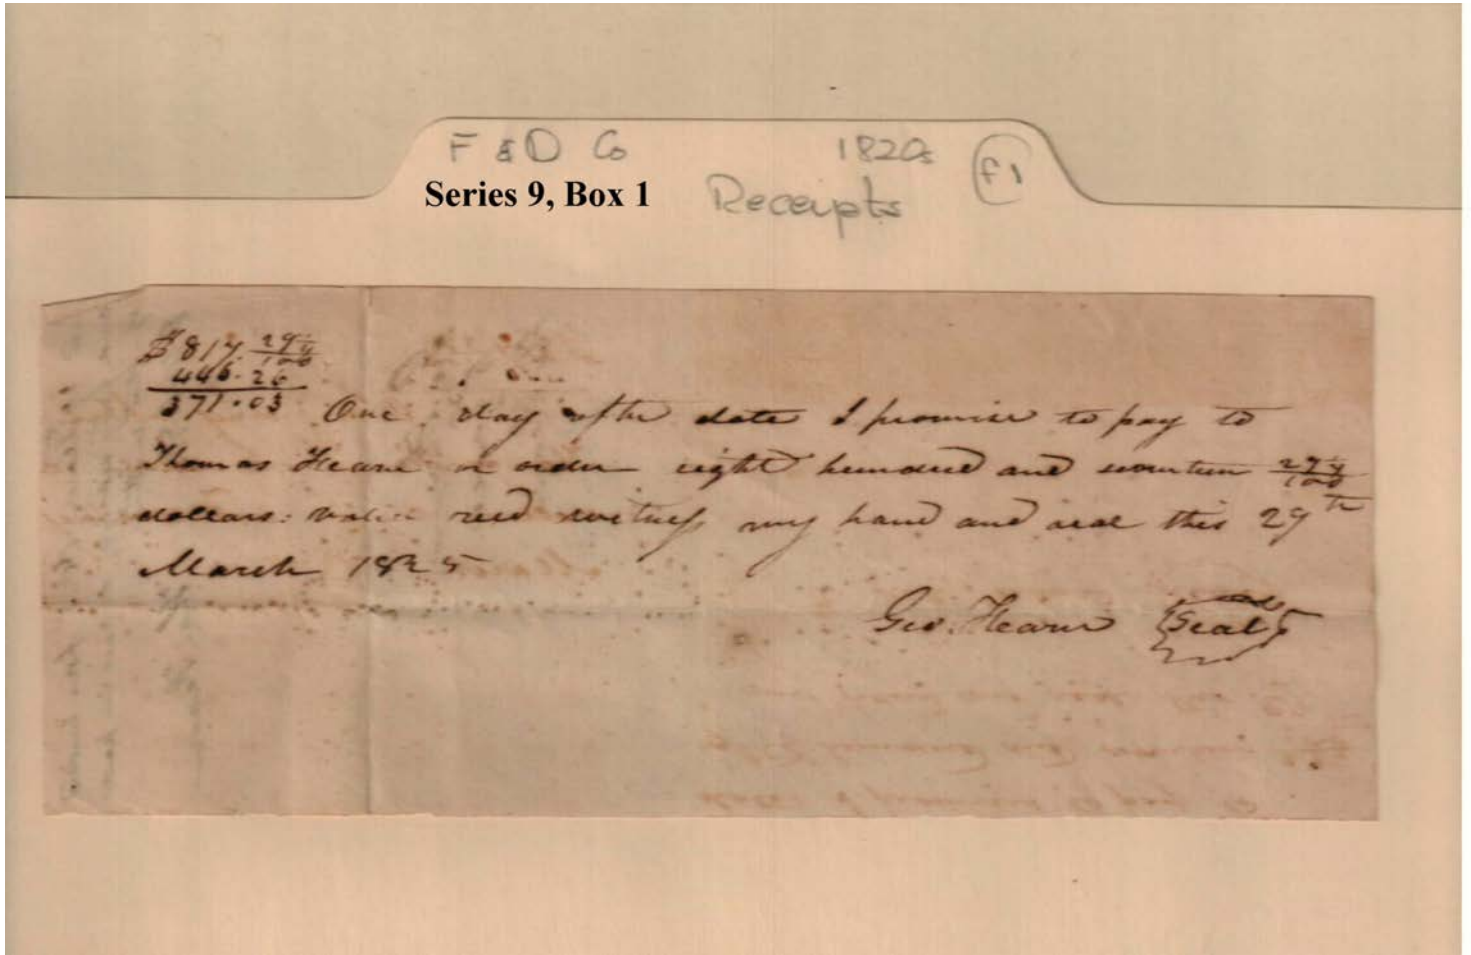 F & D Co 1820s
Series 9, Box 1 Receipts F1
$817. 29/100
446.26
371.03 One day after date I promise to pay to
Thomas Hearn or order eight hundred and seventeen 29/100
dollars: value recd witness my hand and seal this 29th
March 1825
Geo. Hearn Seal